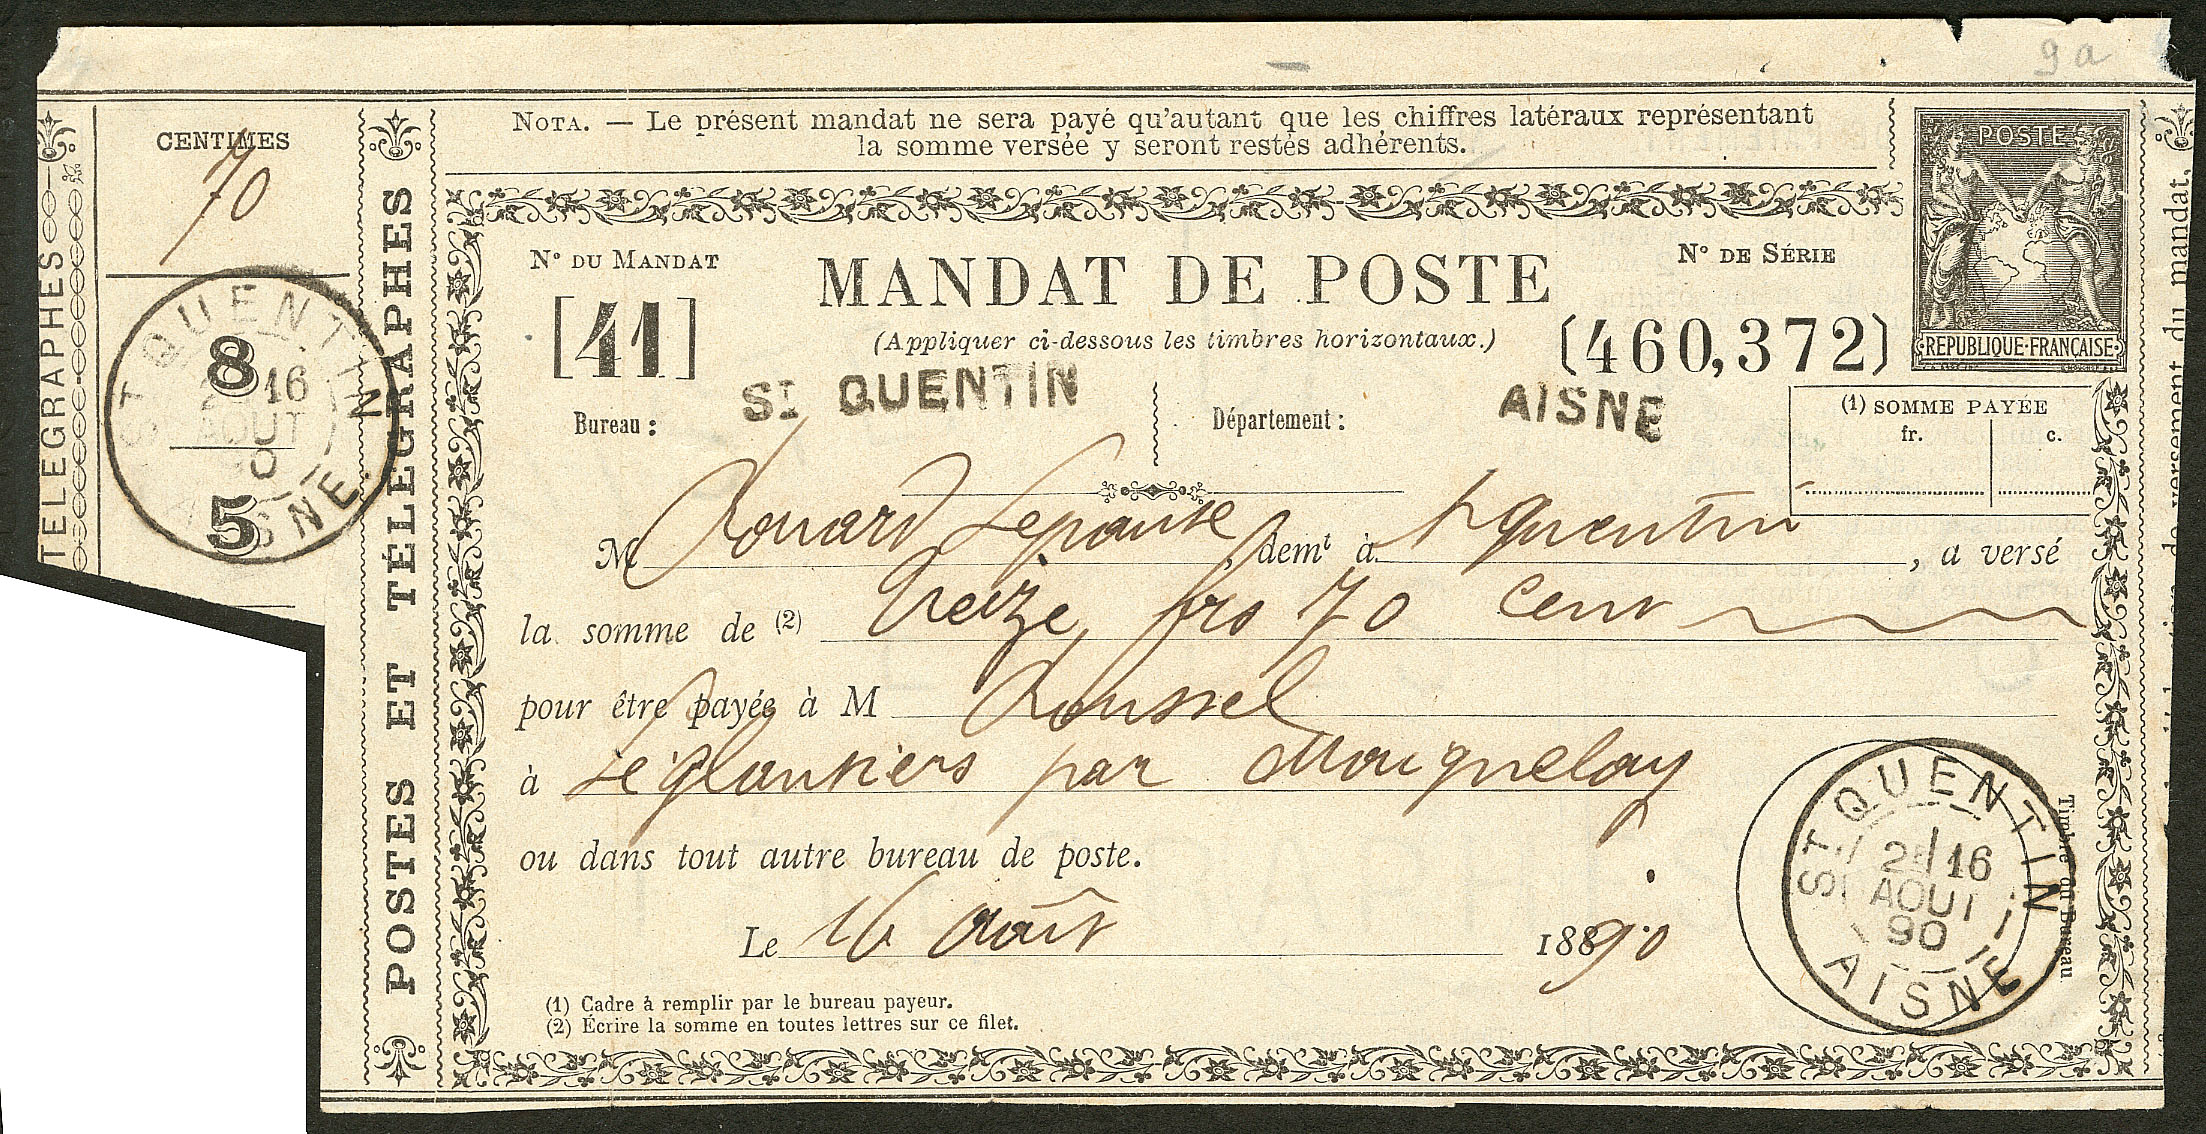 9a
NOTA. — Le présent mandat ne sera payé qu'autant que les chiffres latéraux représentant
la somme versée y seront restés adhérents.
CENTIMES
70
TÉLÉGRAPHES
ST QUENTIN
8
2E/16
AOUT
90
5
AISNE.
POSTES ET TÉLÉGRAPHES
POSTE
REPUBLIQUE·FRANÇAISE
N° DU MANDAT
[41]
MANDAT DE POSTE
(Appliquer ci-dessous les timbres horizontaux.)
N° DE SÉRIE
(460,372)
Bureau :
ST QUENTIN
Département :
AISNE
(1) SOMME PAYÉE
fr. c.
M Rouard Lepouse demt à St quentin, a versé
la somme de (2) Treize frs 70 cent
pour être payée à M Roussel
à par Maignelay
ou dans tout autre bureau de poste.
Le 16 Août 1890
(1) Cadre à remplir par le bureau payeur.
(2) Écrire la somme en toutes lettres sur ce filet.
ST QUENTIN
2E/16
AOUT
90
AISNE
Timbre du Bureau.
de versement du mandat,